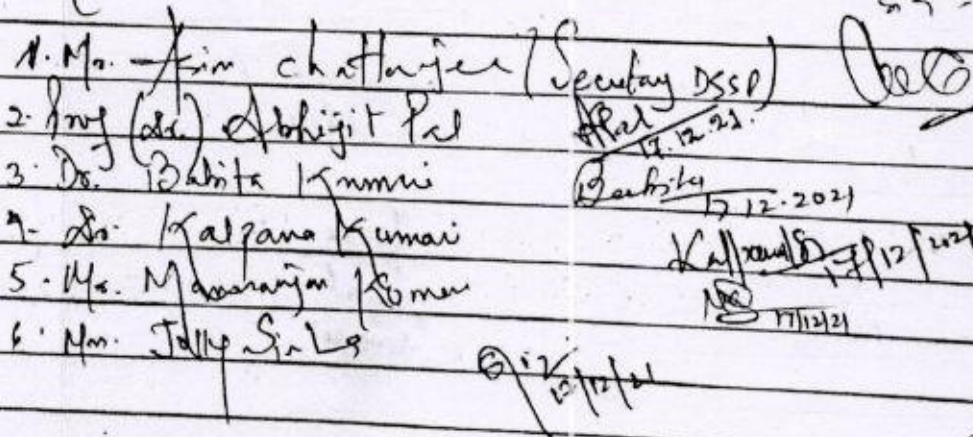 1. Mr. Asim Chatterjee (Secretary DSSP)
2. Prof (Dr.) Abhijit Pal APal 17.12.21.
3. Dr. Babita Kumari Babita 17.12.2021
4. Dr. Kalpana Kumari Kalpana 17/12/2021
5. Mr. Manoranjan Kumar 17/12/21
6. Mr. Jolly Sinha 17/12/21